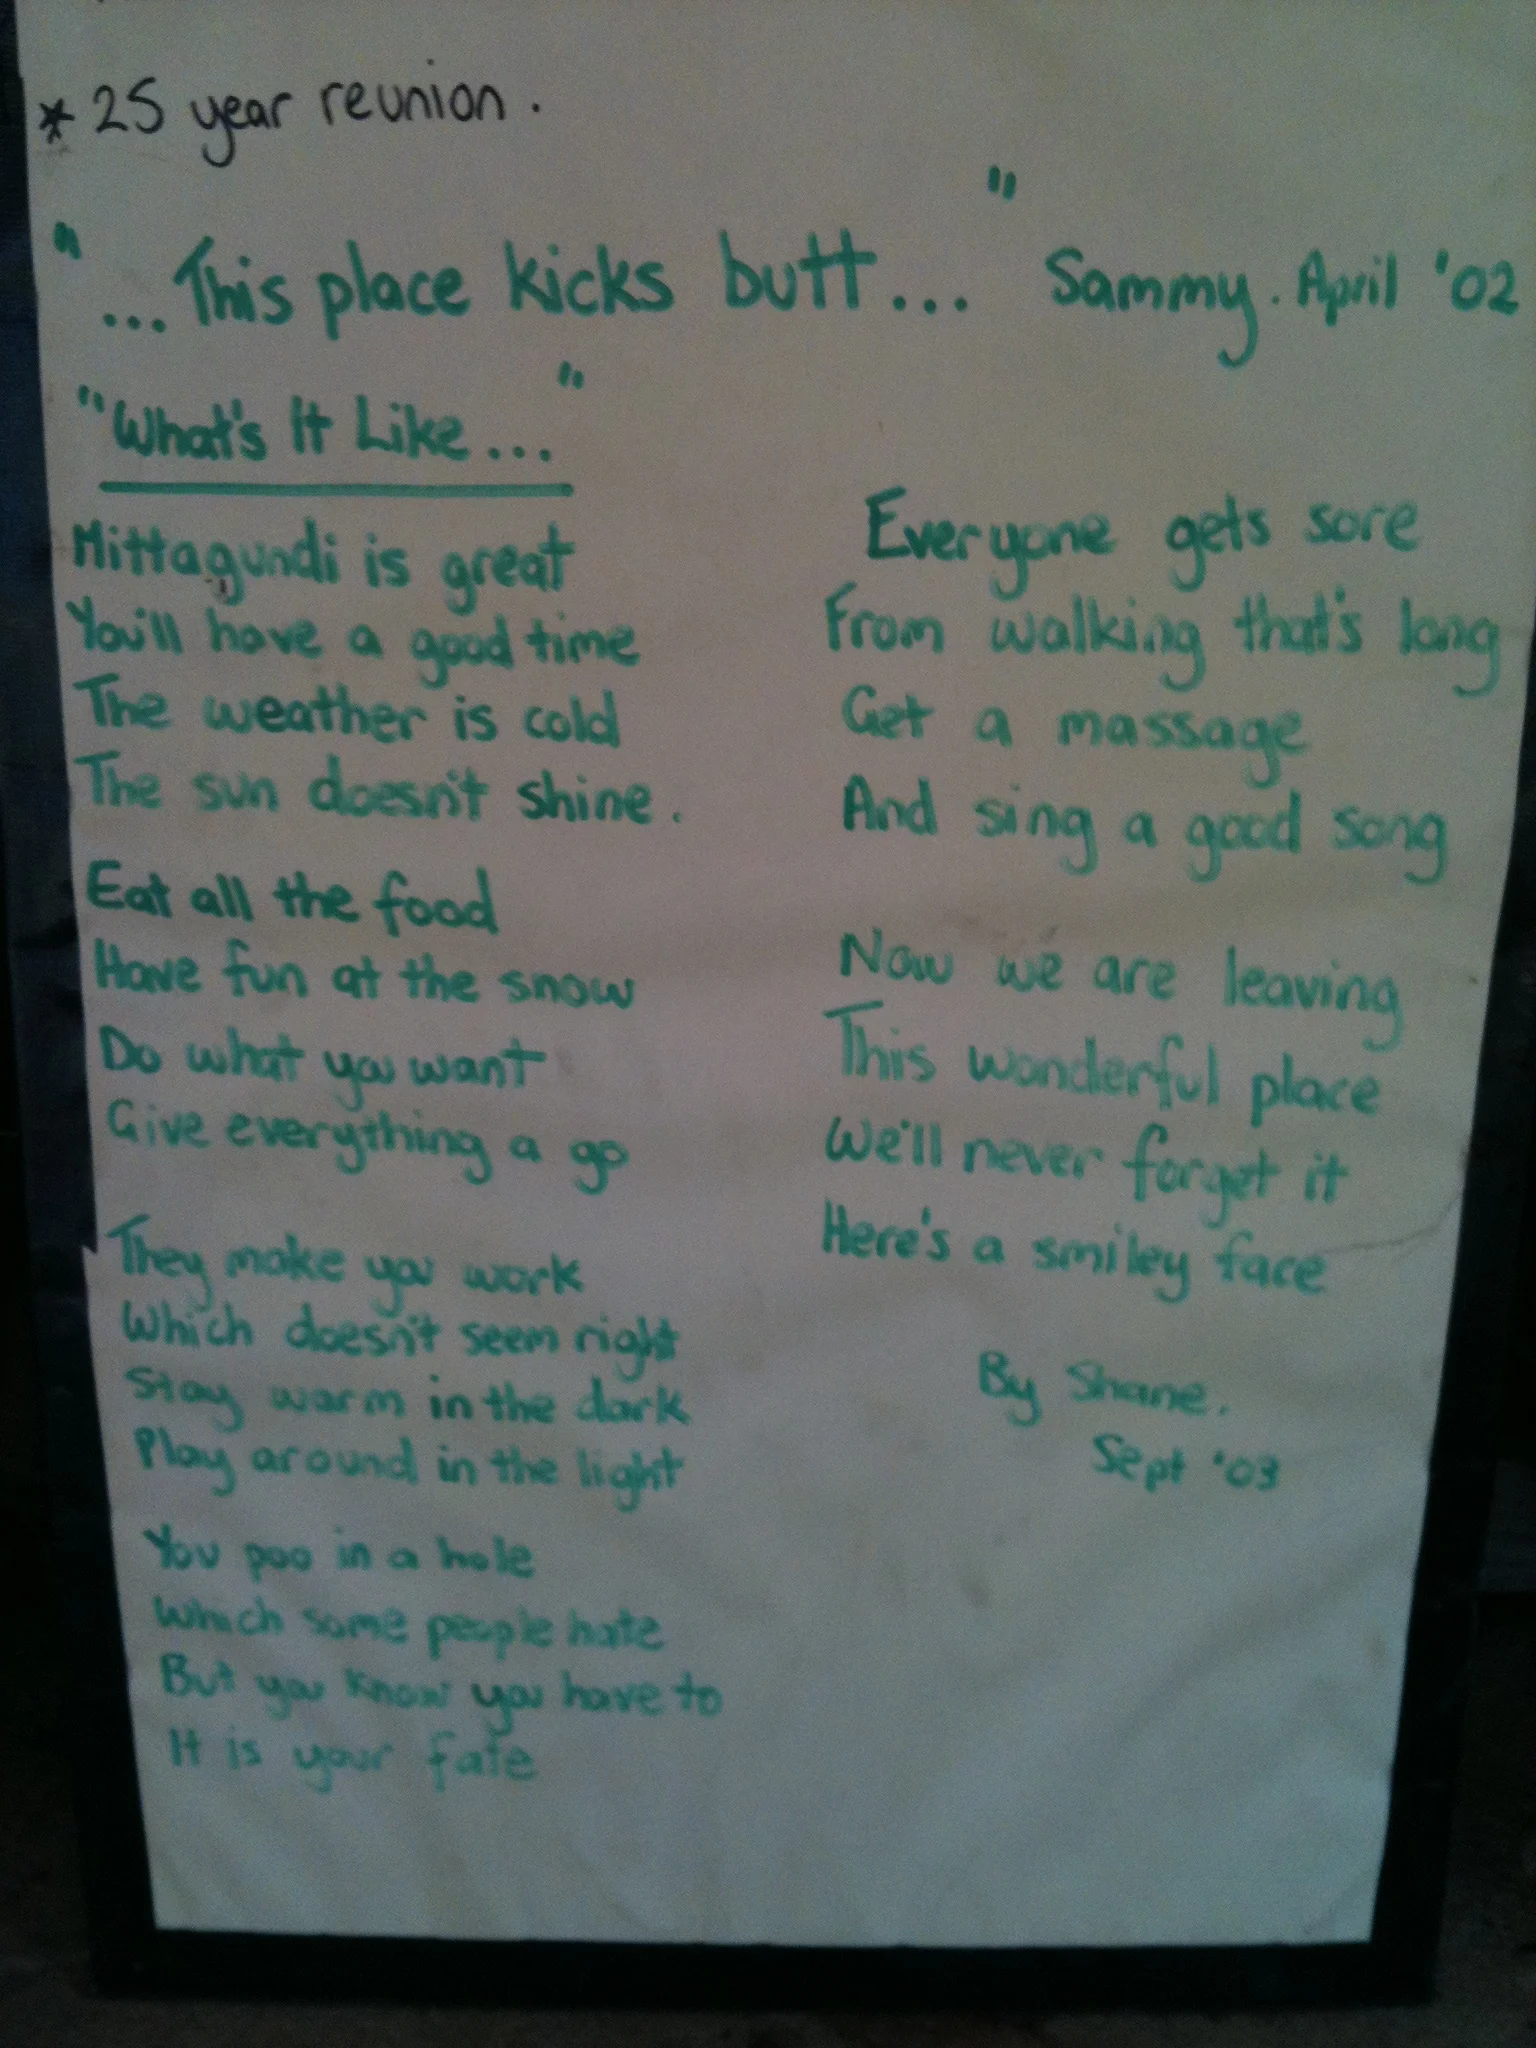 * 25 year reunion.
"...This place kicks butt..." Sammy. April '02
"What's It Like..."
Mittagundi is great
You'll have a good time
The weather is cold
The sun doesn't shine.
Eat all the food
Have fun at the snow
Do what you want
Give everything a go
They make you work
Which doesn't seem right
Stay warm in the dark
Play around in the light
You poo in a hole
Which some people hate
But you know you have to
It is your fate
Everyone gets sore
From walking that's long
Get a massage
And sing a good song
Now we are leaving
This wonderful place
We'll never forget it
Here's a smiley face
By Shane.
Sept '03